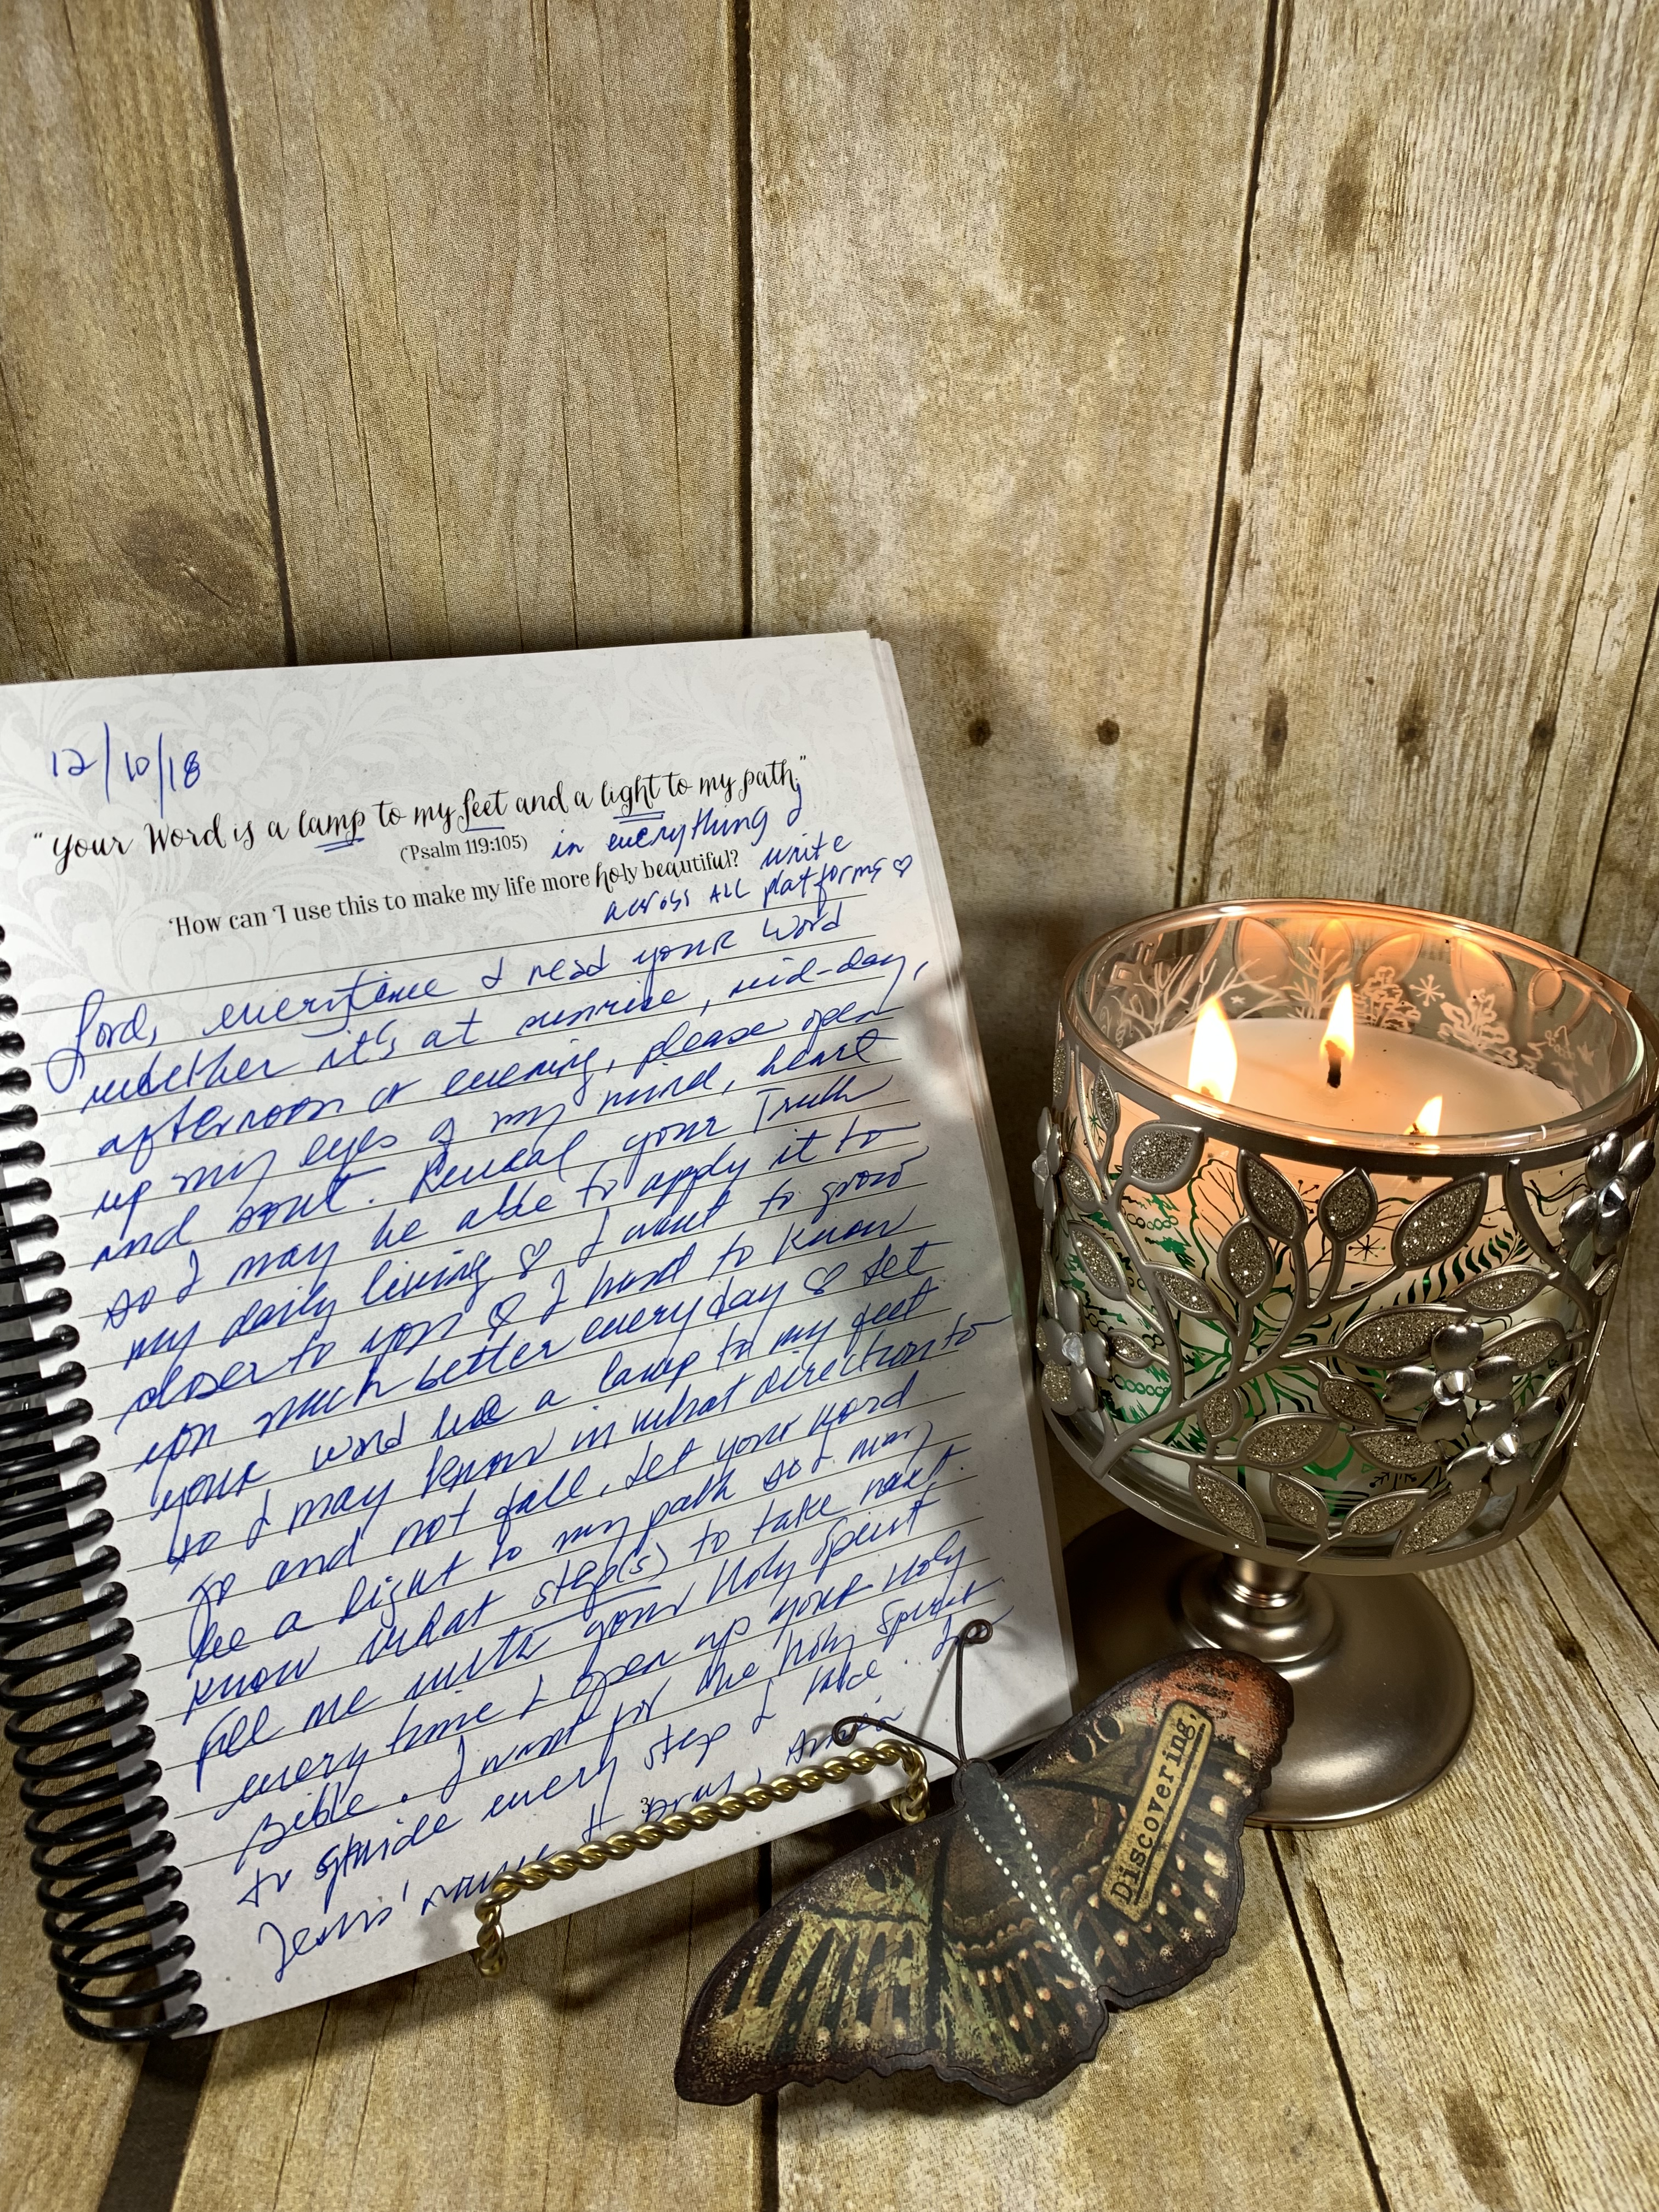 12/10/18
"Your Word is a lamp to my feet and a light to my path,"
(Psalm 119:105) in everything I
"How can I use this to make my life more holy beautiful? write
across ALL platforms ♡
Lord, everytime I read your Word
whether it's at sunrise, mid-day,
afternoon or evening, please open
up my eyes of my mind, heart
and soul. Reveal your Truth
so I may be able to apply it to
my daily living ♡ I want to grow
closer to you ♡ I want to know
you much better everyday ♡ Let
your word be a lamp to my feet
so I may know in what direction to
go and not fall. Let your word
be a light to my path so I may
know what step(s) to take next.
Fill me with your Holy Spirit
every time I open up your Holy
Bible. I want for the Holy Spirit
to guide every step I take. In
Jesus' name I pray, Amen
3
Discovering,